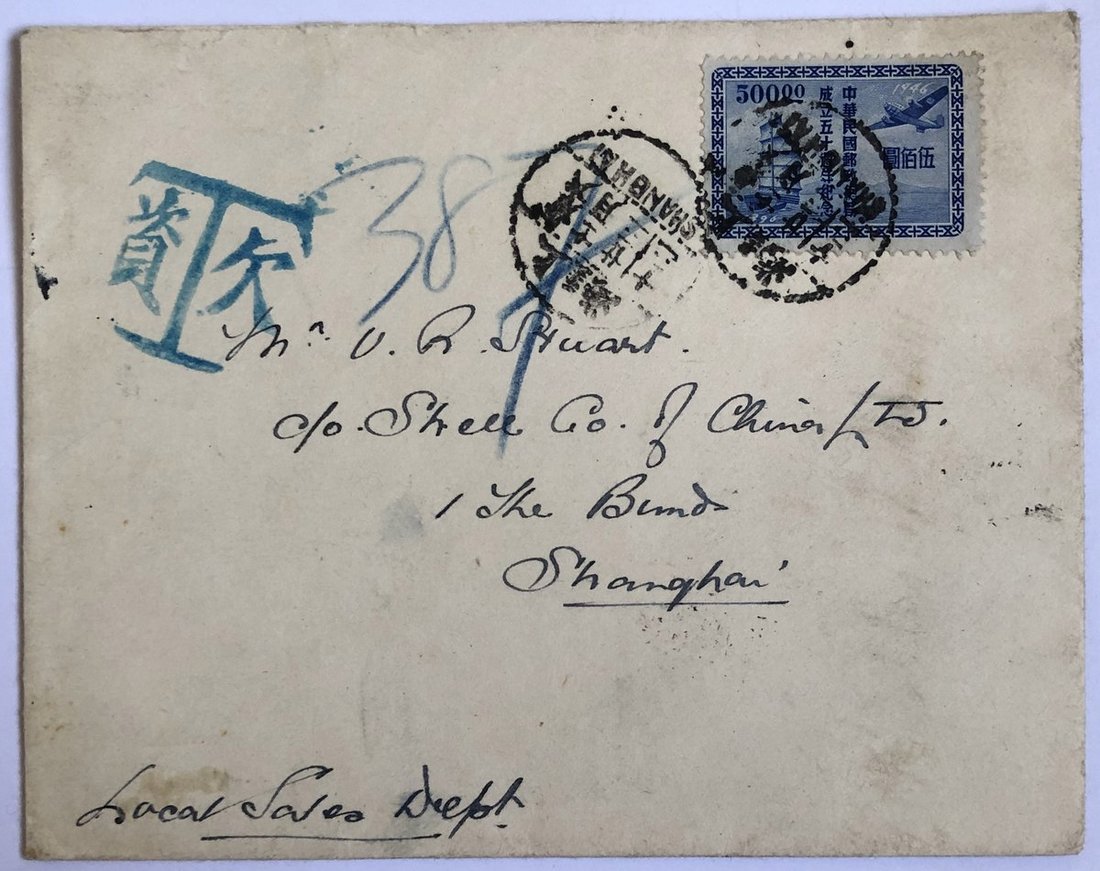 500.00
1946
中華民國郵政總局
成立五十週年紀念
伍佰圓
SHANGHAI
上海
SHANGHAI
欠資
387
Mr. V. R. Stuart.
c/o. Shell Co. of China Ltd.
1 The Bund
Shanghai
Local Sales Dept.